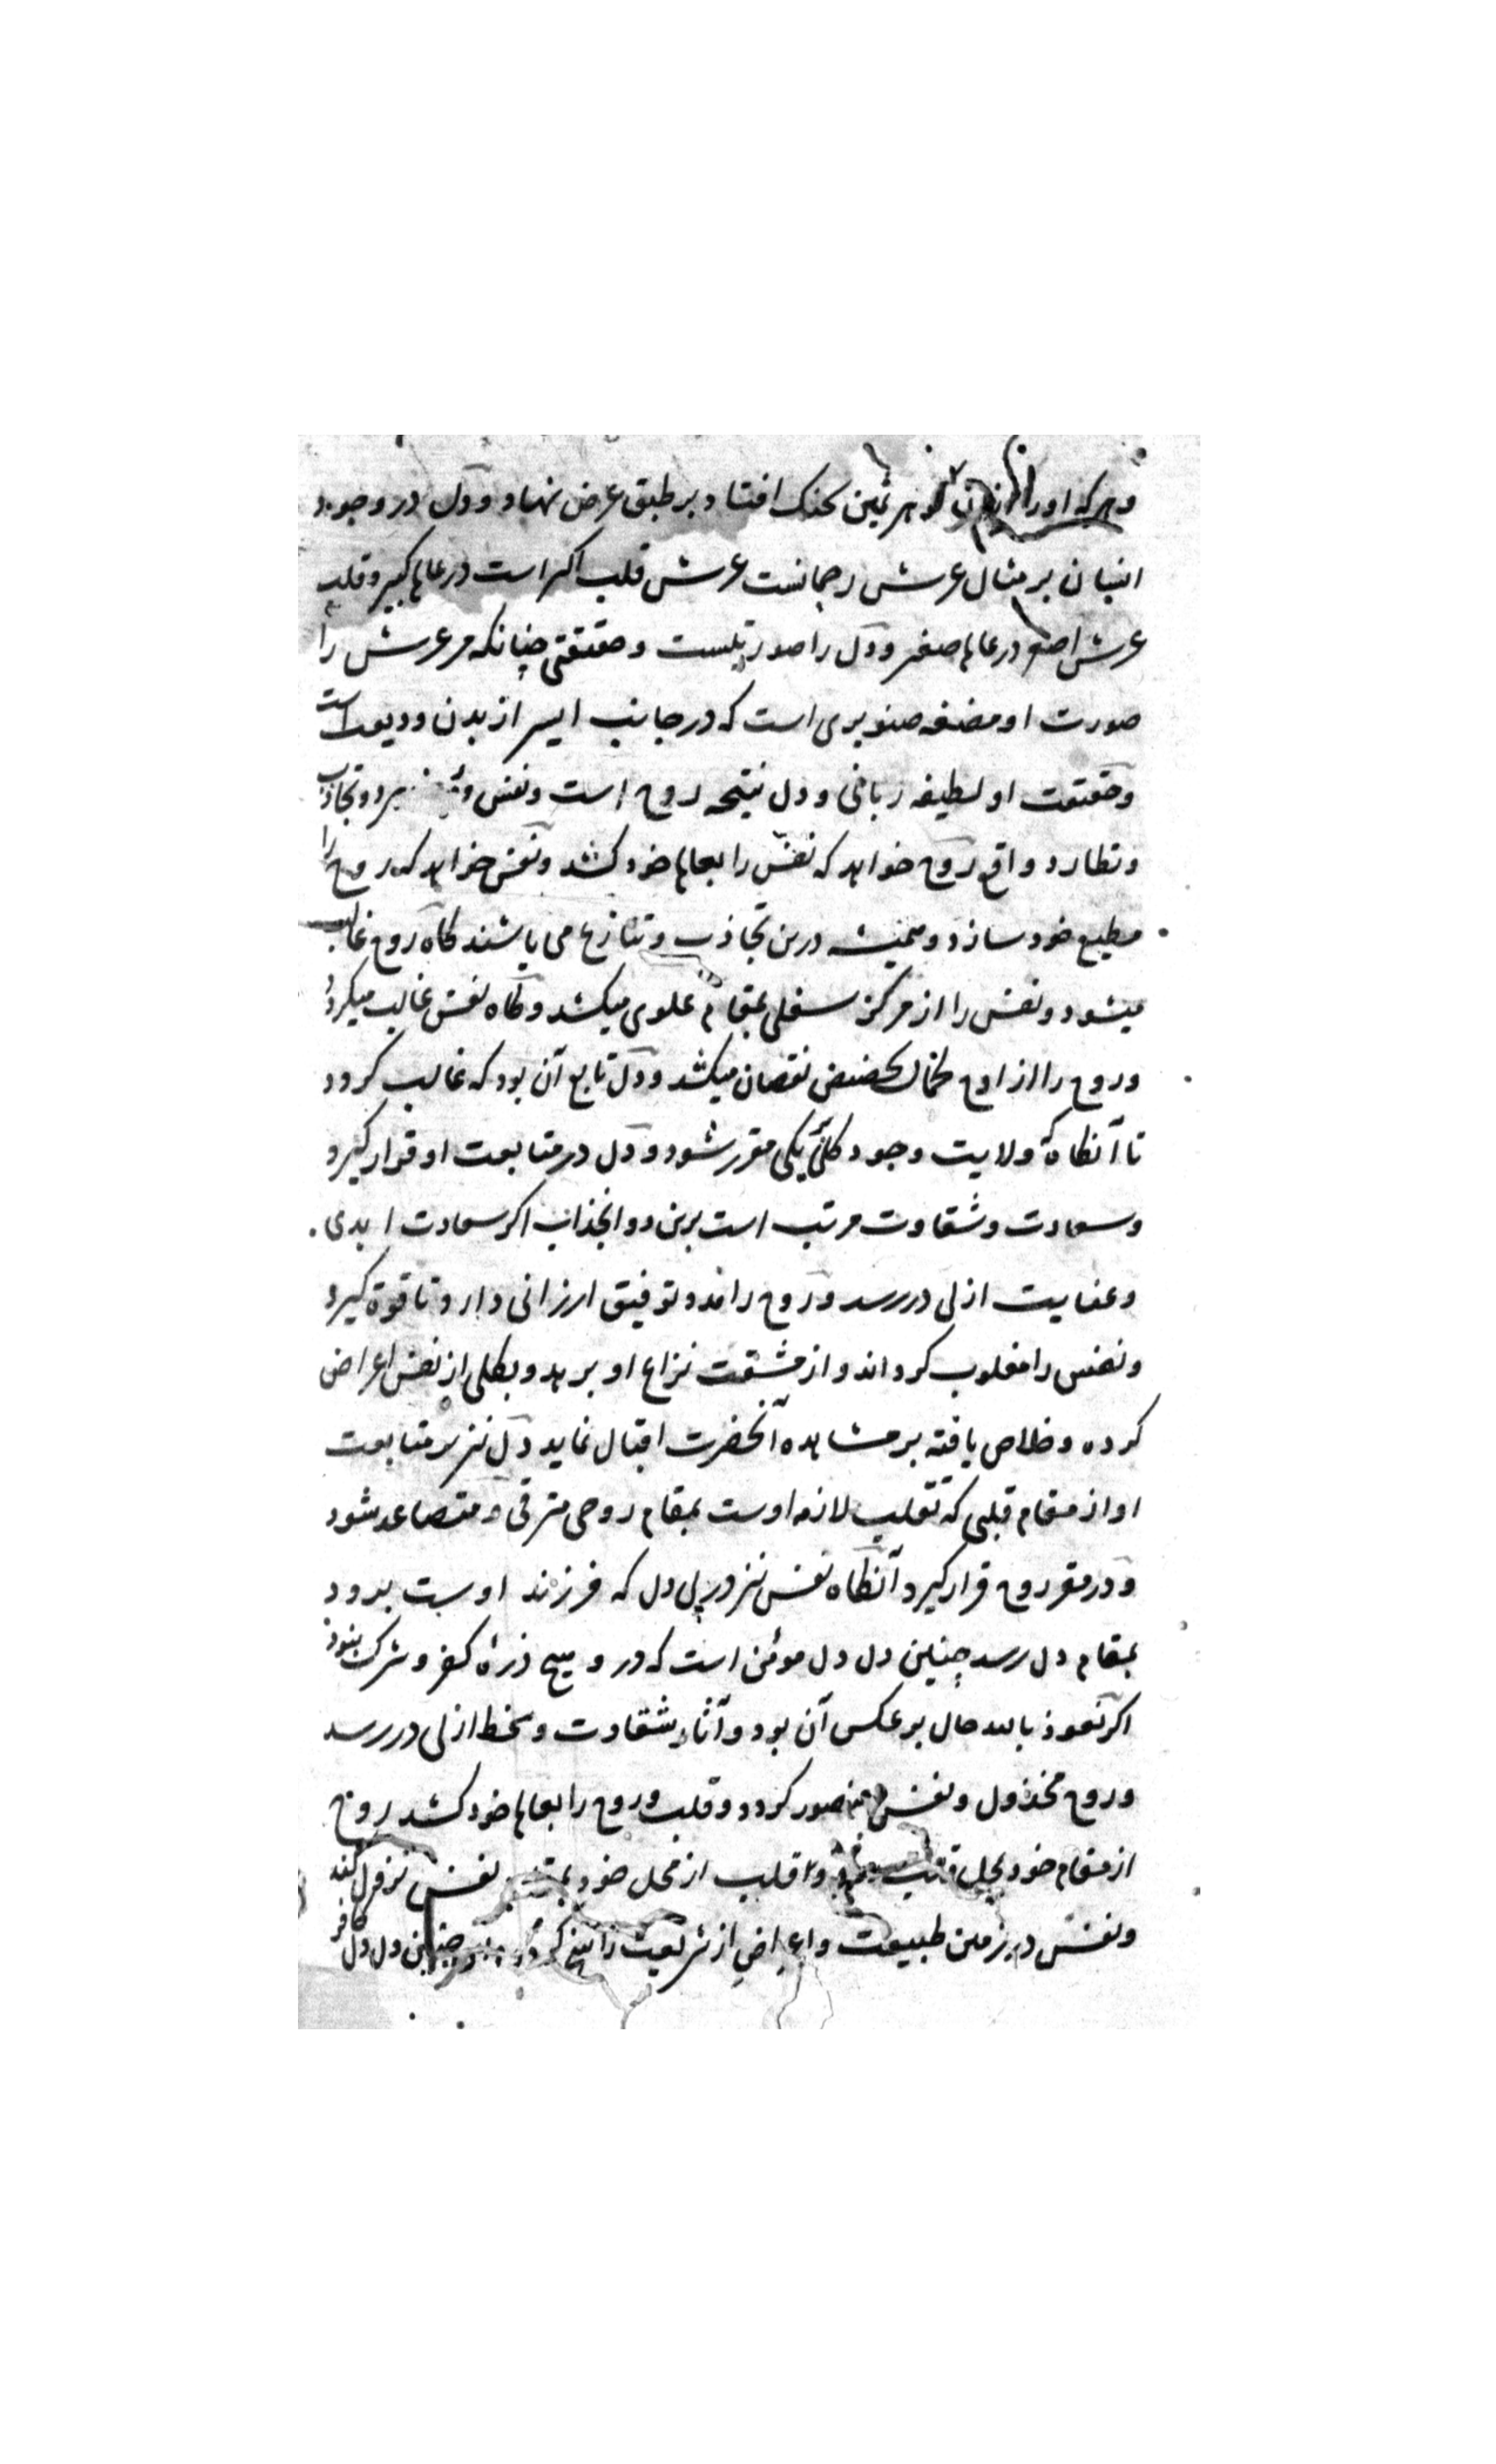 و هر که او را از آن گوهر ثمین بچنک افتاد بر طبق عرض نهاد و دل در وجود
انسان بر مثال عرش رحمانست عرش قلب اکبر است در عالم کبیر و قلب
عرش اصغر در عالم صغیر و دل را صورتیست و حقیقتی چنانکه مر عرش را
صورت او مضغه صنوبری است که در جانب ایسر از بدن ودیعت است
و حقیقت او لطیفه ربانی و دل نتیجه روح است و نفس و تجاذب
و تطارد واقع روح خواهد که نفس را بعالم خود کشد و نفس خواهد که روح را
مطیع خود سازد و همیشه درین تجاذب و تنازع می باشند کاه روح غالب
میشود و نفس را از مرکز سفلی بمقام علوی میکشد و کاه نفس غالب میکردد
و روح را از اوج کمال بحضیض نقصان میکشد و دل تابع آن بود که غالب کردد
تا آنکاه که ولایت وجود کلی بیکی مقرر شود و دل در متابعت او قرار کیرد
و سعادت و شقاوت مرتب است برین دو انجذاب اکر سعادت ابدی
و عنایت ازلی در رسد و روح را مدد توفیق ارزانی دارد تا قوة کیرد
و نفس را مغلوب کرداند و از مشقت نزاع او برهد و بکلی از نفس اعراض
کرده و خلاص یافته بر مشاهده آنحضرت اقبال نماید دل نیز بر متابعت
او از مقام قلبی که تقلب لازمه اوست بمقام روحی مترقی و متصاعد شود
و در مقر روح قرار کیرد آنکاه نفس نیز در پی دل که فرزند اوست برود
بمقام دل رسد چنین دل دل مومن است که در و هیچ ذرهٔ کفر و شرک نبود
اکر نعوذ بالله حال بر عکس آن بود و آثار شقاوت و سخط ازلی در رسد
و روح مخذول و نفس منصور کردد و قلب و روح را بعالم خود کشد روح
از مقام خود بمحل قلب و قلب از محل خود نفس نزول کند
و نفس در زمین طبیعت و اعراض از شریعت راسخ چنین دل دل کافر